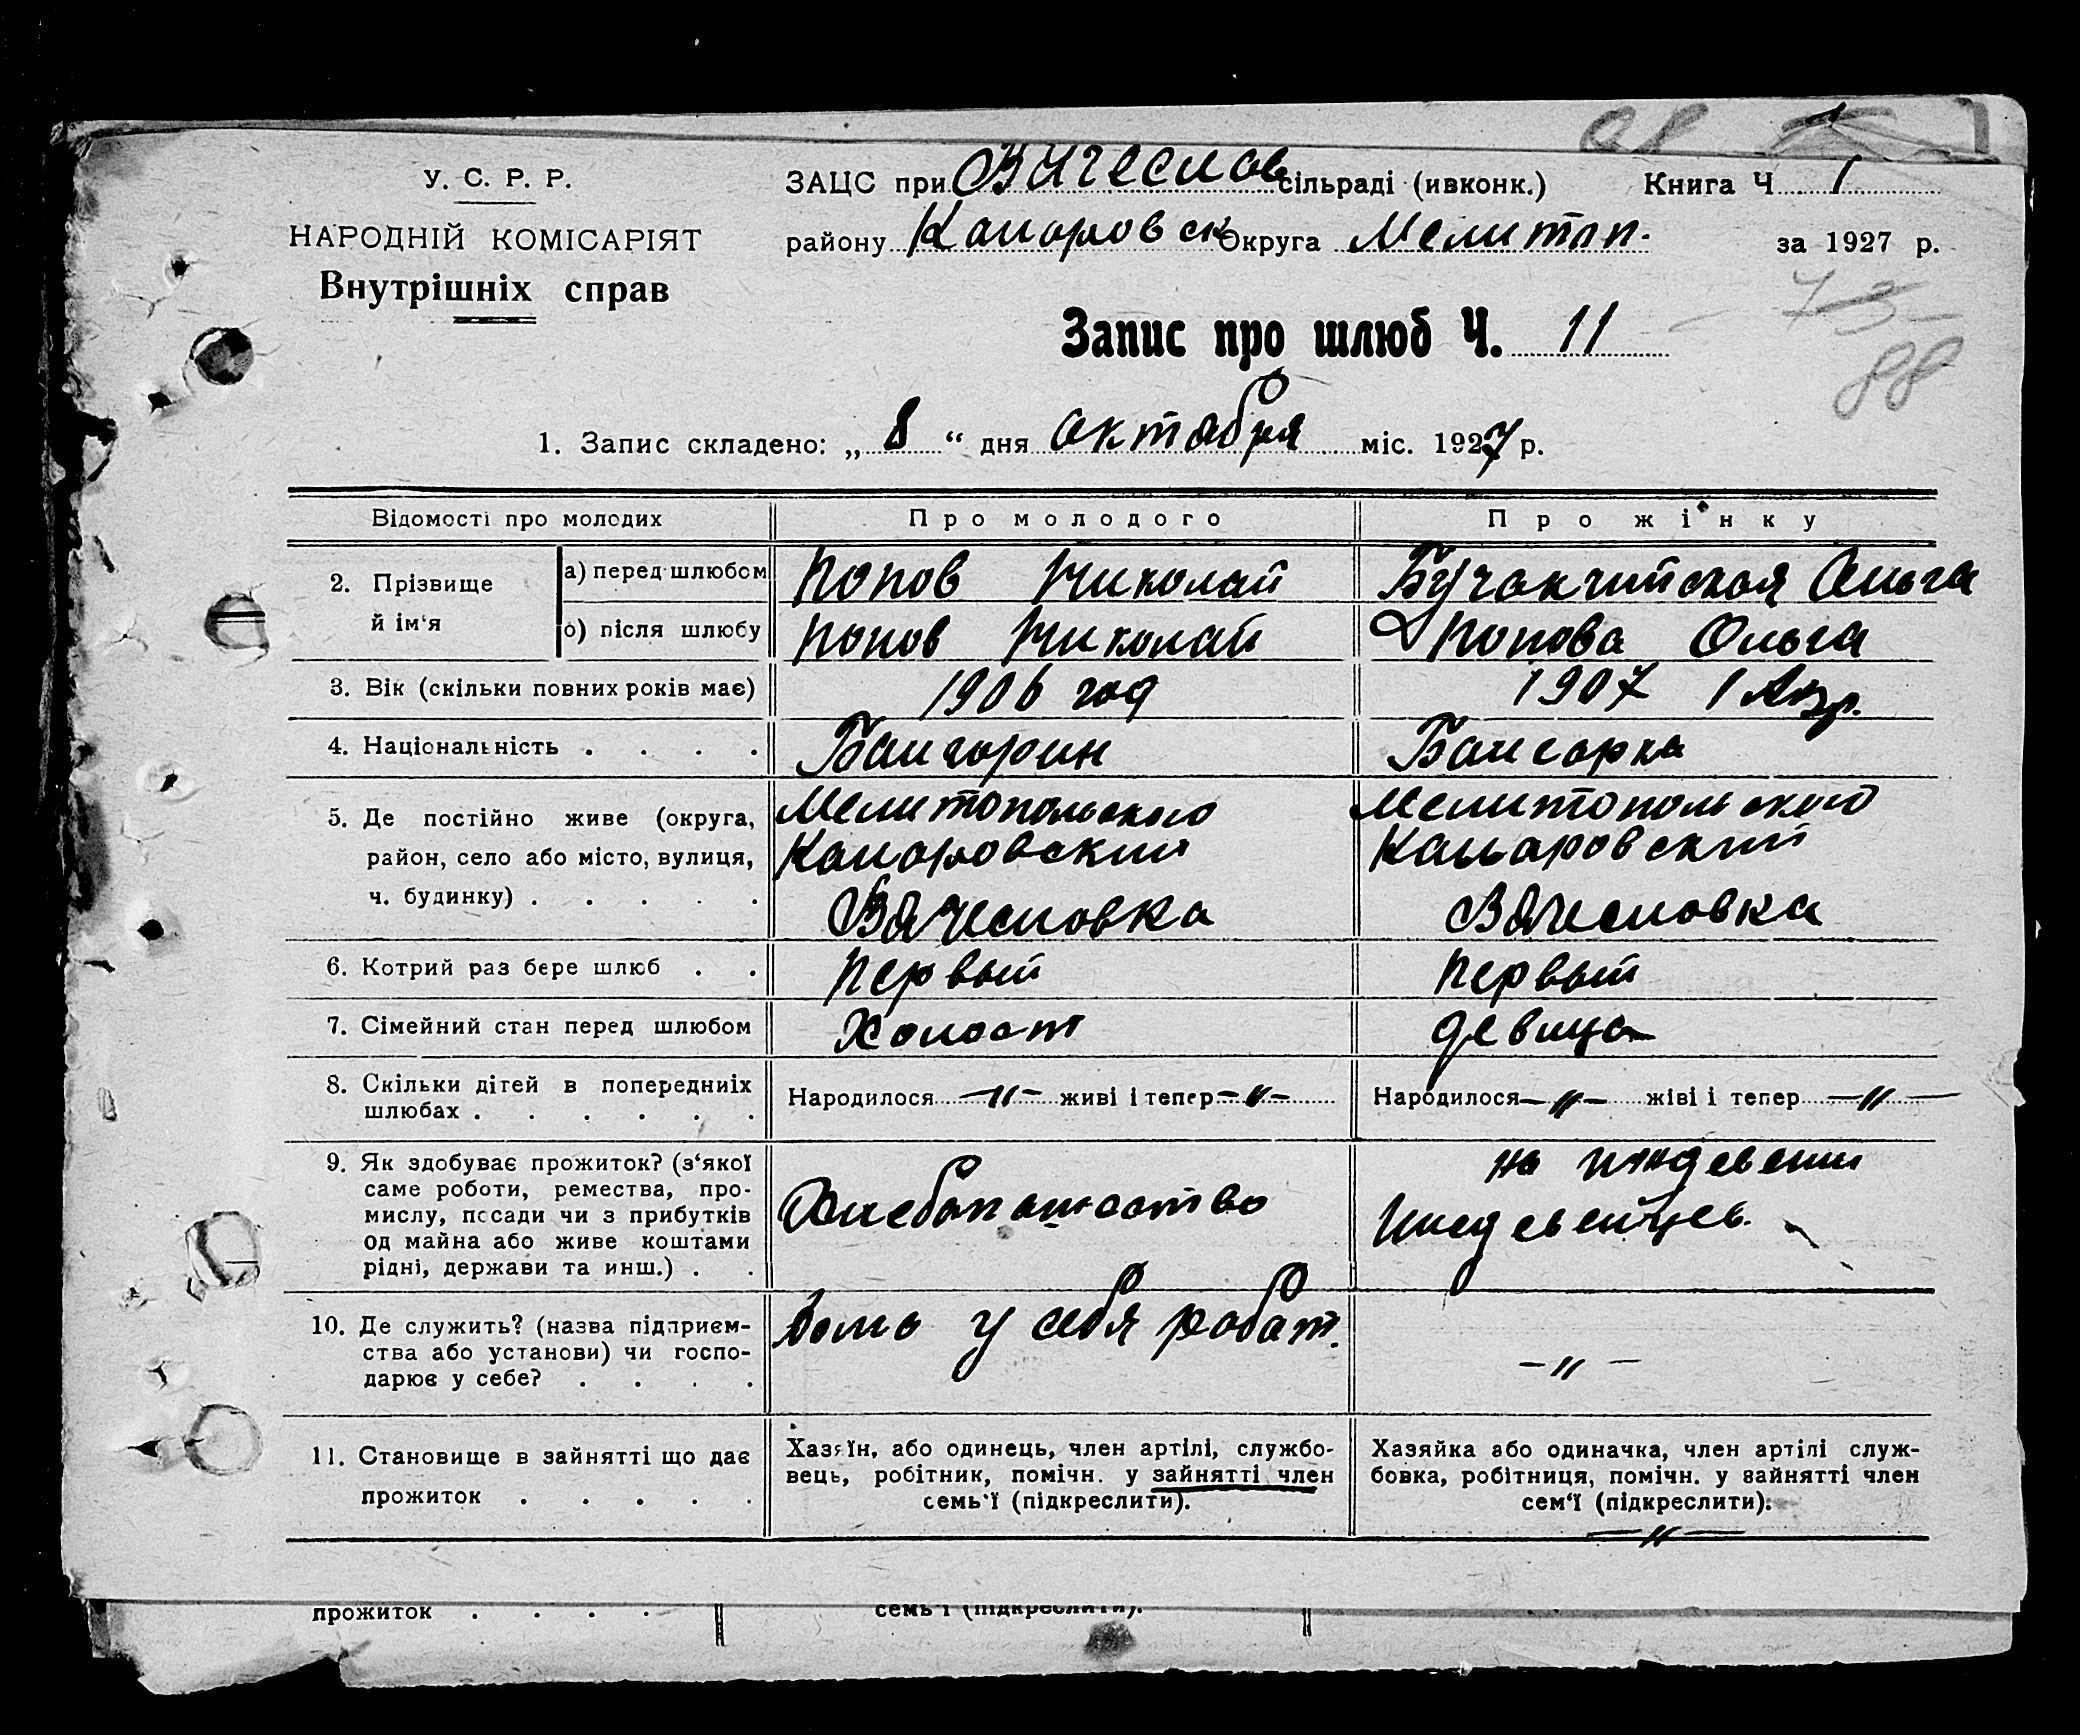 У. С. Р. Р.
НАРОДНІЙ КОМІСАРІЯТ
Внутрішніх справ
ЗАЦС при Вячеслов сільраді (ивконк.) Книга Ч 1
району Коларовск Округа Мелитоп. за 1927 р.
73
88
Запис про шлюб Ч. 11
1. Запис складено: „ 8 “ дня октября міс. 1927 р.
Відомості про молодих
Про молодого
Про жінку
2. Прізвище й ім‘я
а) перед шлюбом
Попов Николай
Ольга
б) після шлюбу
Попов Николай
Попова Ольга
3. Вік (скільки повних років має)
1906 год
1907 1 Апр.
4. Національність . . . .
Болгорин
Болгорка
5. Де постійно живе (округа,
район, село або місто, вулиця,
ч. будинку) . . . . .
Мелитопольского
Коларовский
Вячесловка
Мелитопольского
Каларовский
Вячесловка
6. Котрий раз бере шлюб . .
Первый
Первый
7. Сімейний стан перед шлюбом
Холост
девица
8. Скільки дітей в попередниіх
шлюбах . . . . . .
Народилося —"— живі і тепер —"—
Народилося —"— жіві і тепер —"—
9. Як здобуває прожиток? (з‘якої
саме роботи, ремества, про-
мислу, посади чи з прибутків
од майна або живе коштами
рідні, держави та инш.) . .
Хлебопашество
на иждевении
10. Де служить? (назва підприєм-
ства або установи) чи госпо-
дарює у себе? . . . .
дома у себя робот.
—"—
11. Становище в зайнятті що дає
прожиток . . . . .
Хазяїн, або одинець, член артілі, службо-
вець, робітник, помічн. у зайнятті член
семь‘ї (підкреслити).
Хазяйка або одиначка, член артілі служ-
бовка, робітниця, помічн. у зайнятті член
сем‘ї (підкреслити).
—"—
прожиток . . . .
семь‘ї (підкреслити).